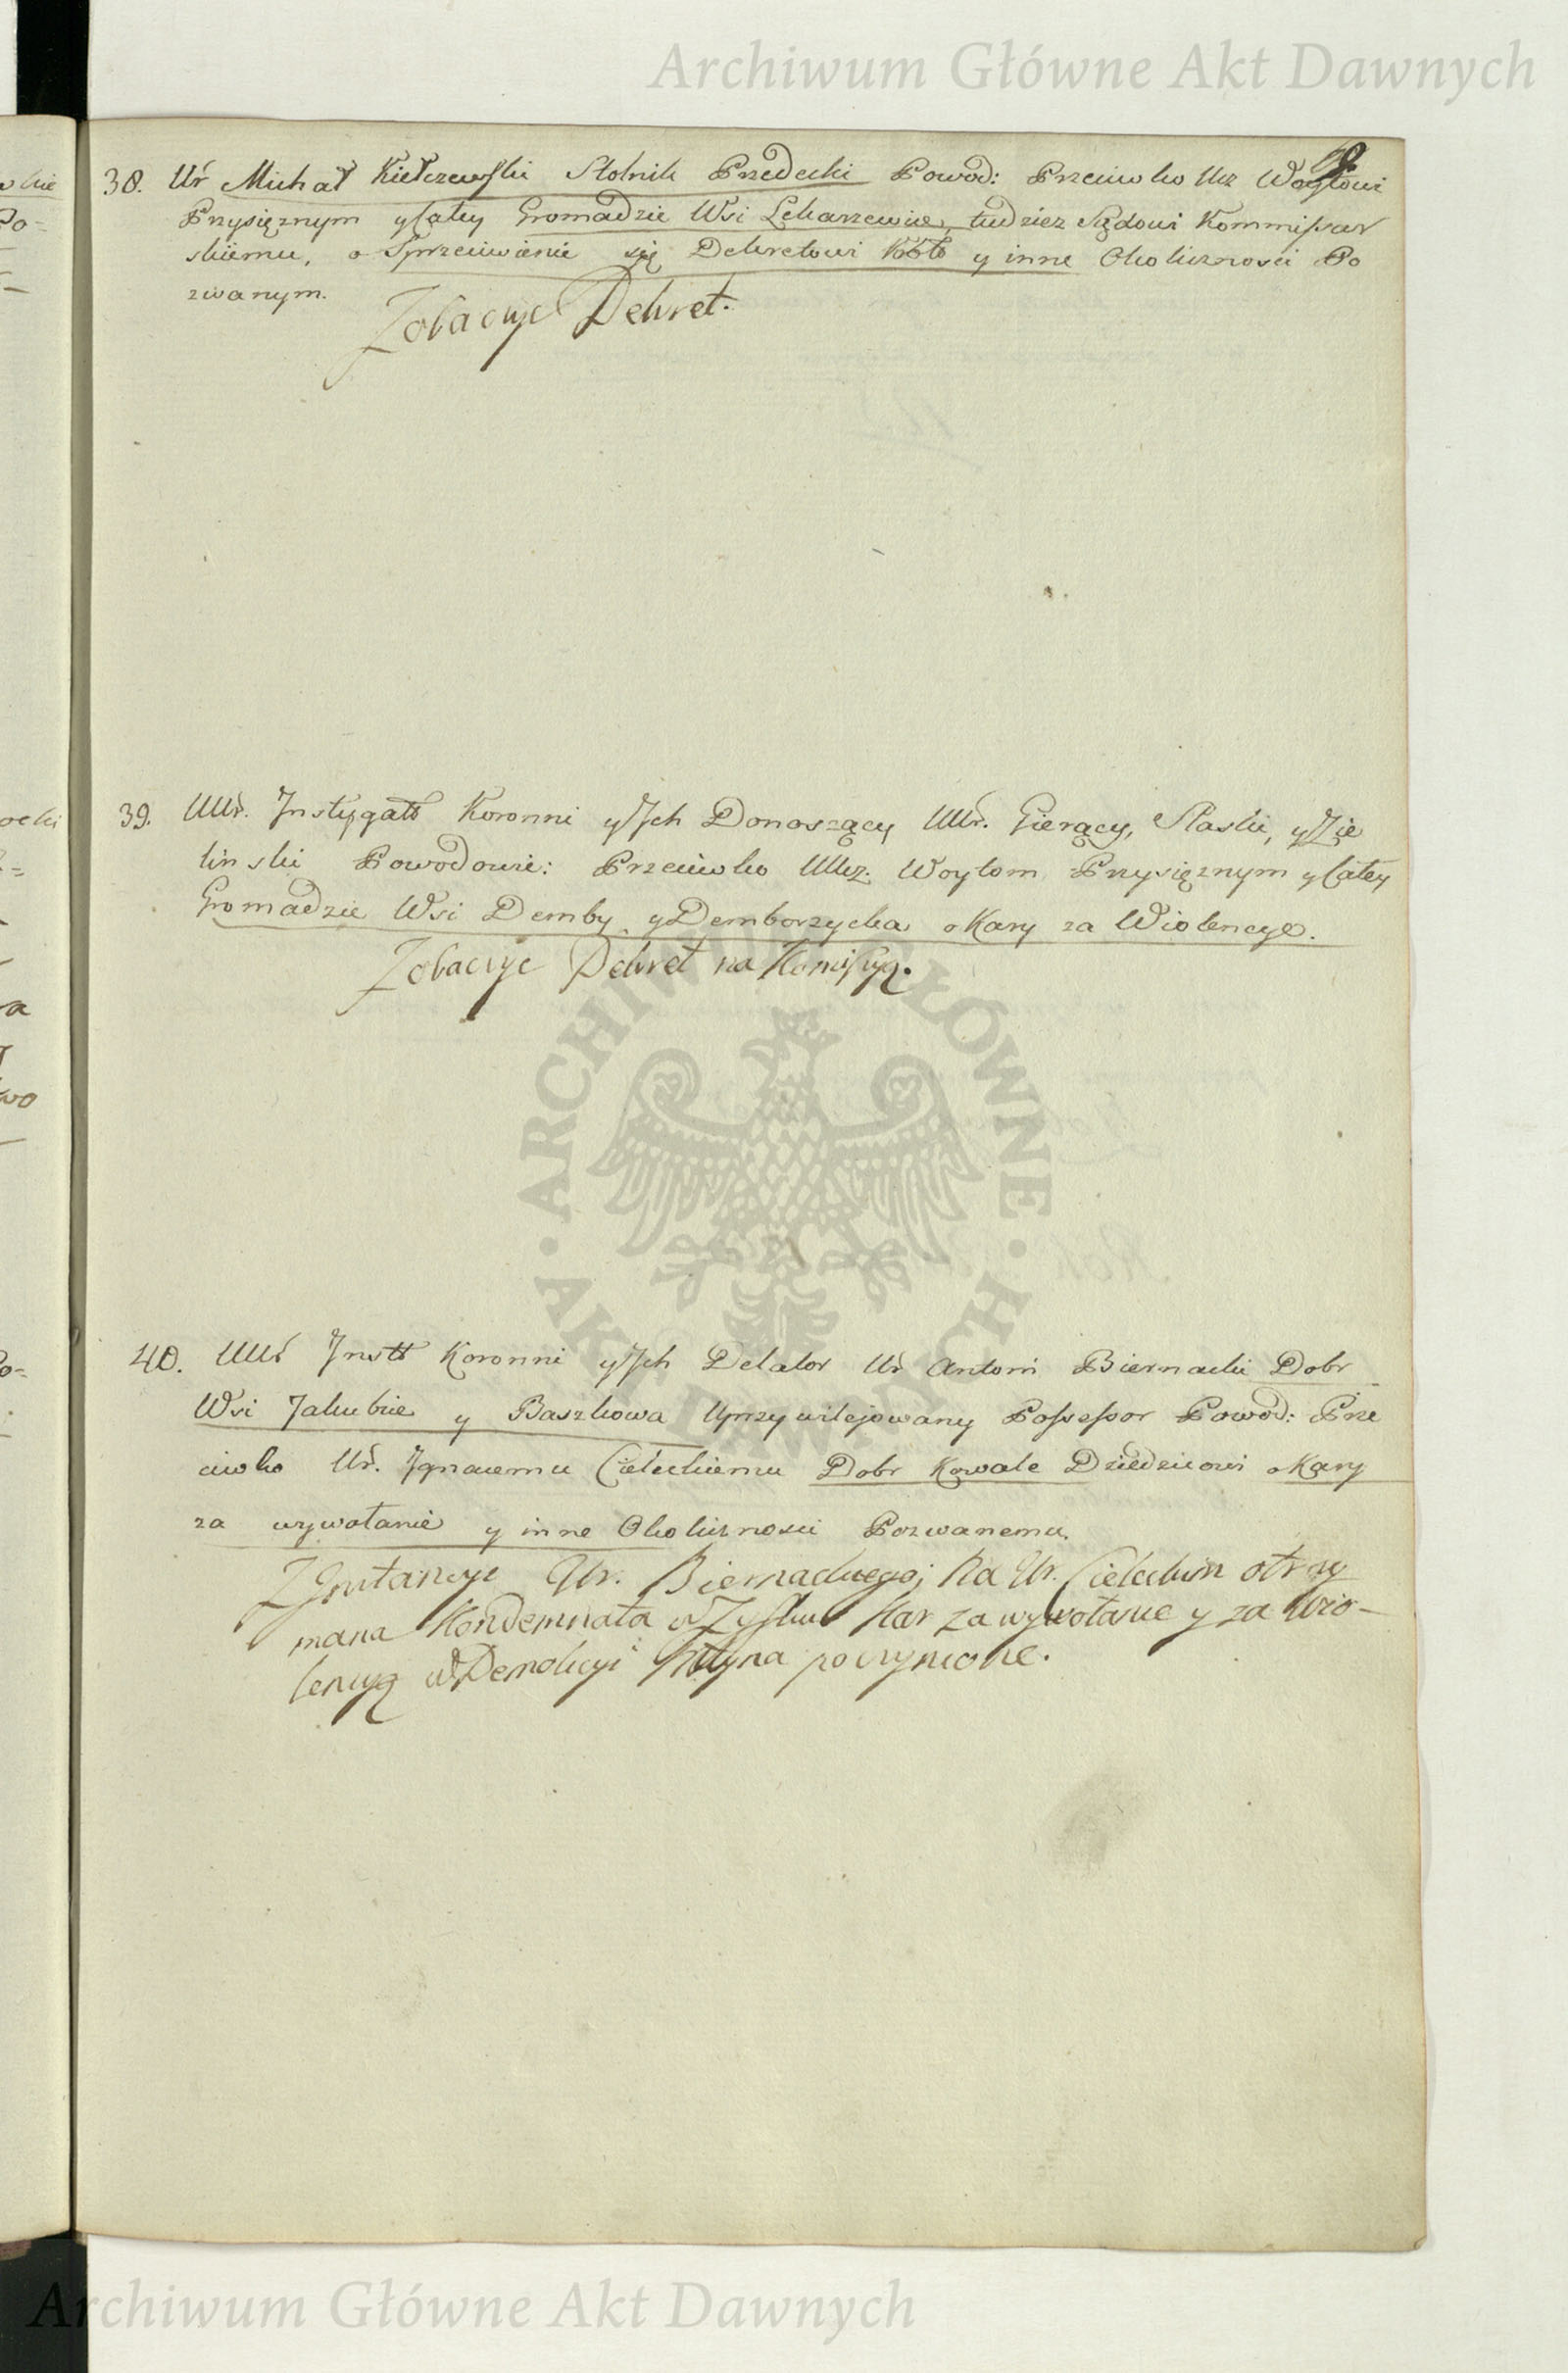 Archiwum Główne Akt Dawnych
38. Ur Michał Kiełczewski Stolnik Przedecki Powod: Przeciwko Ucz Woytowi
Przysięznym y całey Gromadzie Wsi Lekarzewice, tudziez Sądowi Kommissar
skiemu, o Sprzeciwienie się Dekretowi y inne Okolicznosci Po
zwanym.
Zobaczyc Dekret.
39. UUr. Instygatt Koronni y Jch Donoszący UUr. Gierący, Slaski, y Zie
linski Powodowie: Przeciwko UUcz. Woytom Przysięznym y całey
Gromadzie Wsi Demby y Demborzycka o Kary za Wiolencye.
Zobaczyc Dekret na Komissyą.
40. UUr Jnstt Koronni y Jch Delator Ur Antoni Biernacki Dobr
Wsi Jakubice y Baszkowa Uprzywilejowany Possessor Powod: Prze
ciwko Ur. Jgnacemu Cieleckiemu Dobr Kowale Dziedzicowi o Kary
za wywołanie y inne Okolicznosci Pozwanemu.
Z Jnstancye Ur. Biernackiego; Na Ur. Cieleckim otrzy
mana Kondemnata w Zysku Kar za wywołanie y za Wio-
lencyą w Demolicyi Młyna poczynione.
ARCHIWUM GŁÓWNE AKT DAWNYCH
Archiwum Główne Akt Dawnych